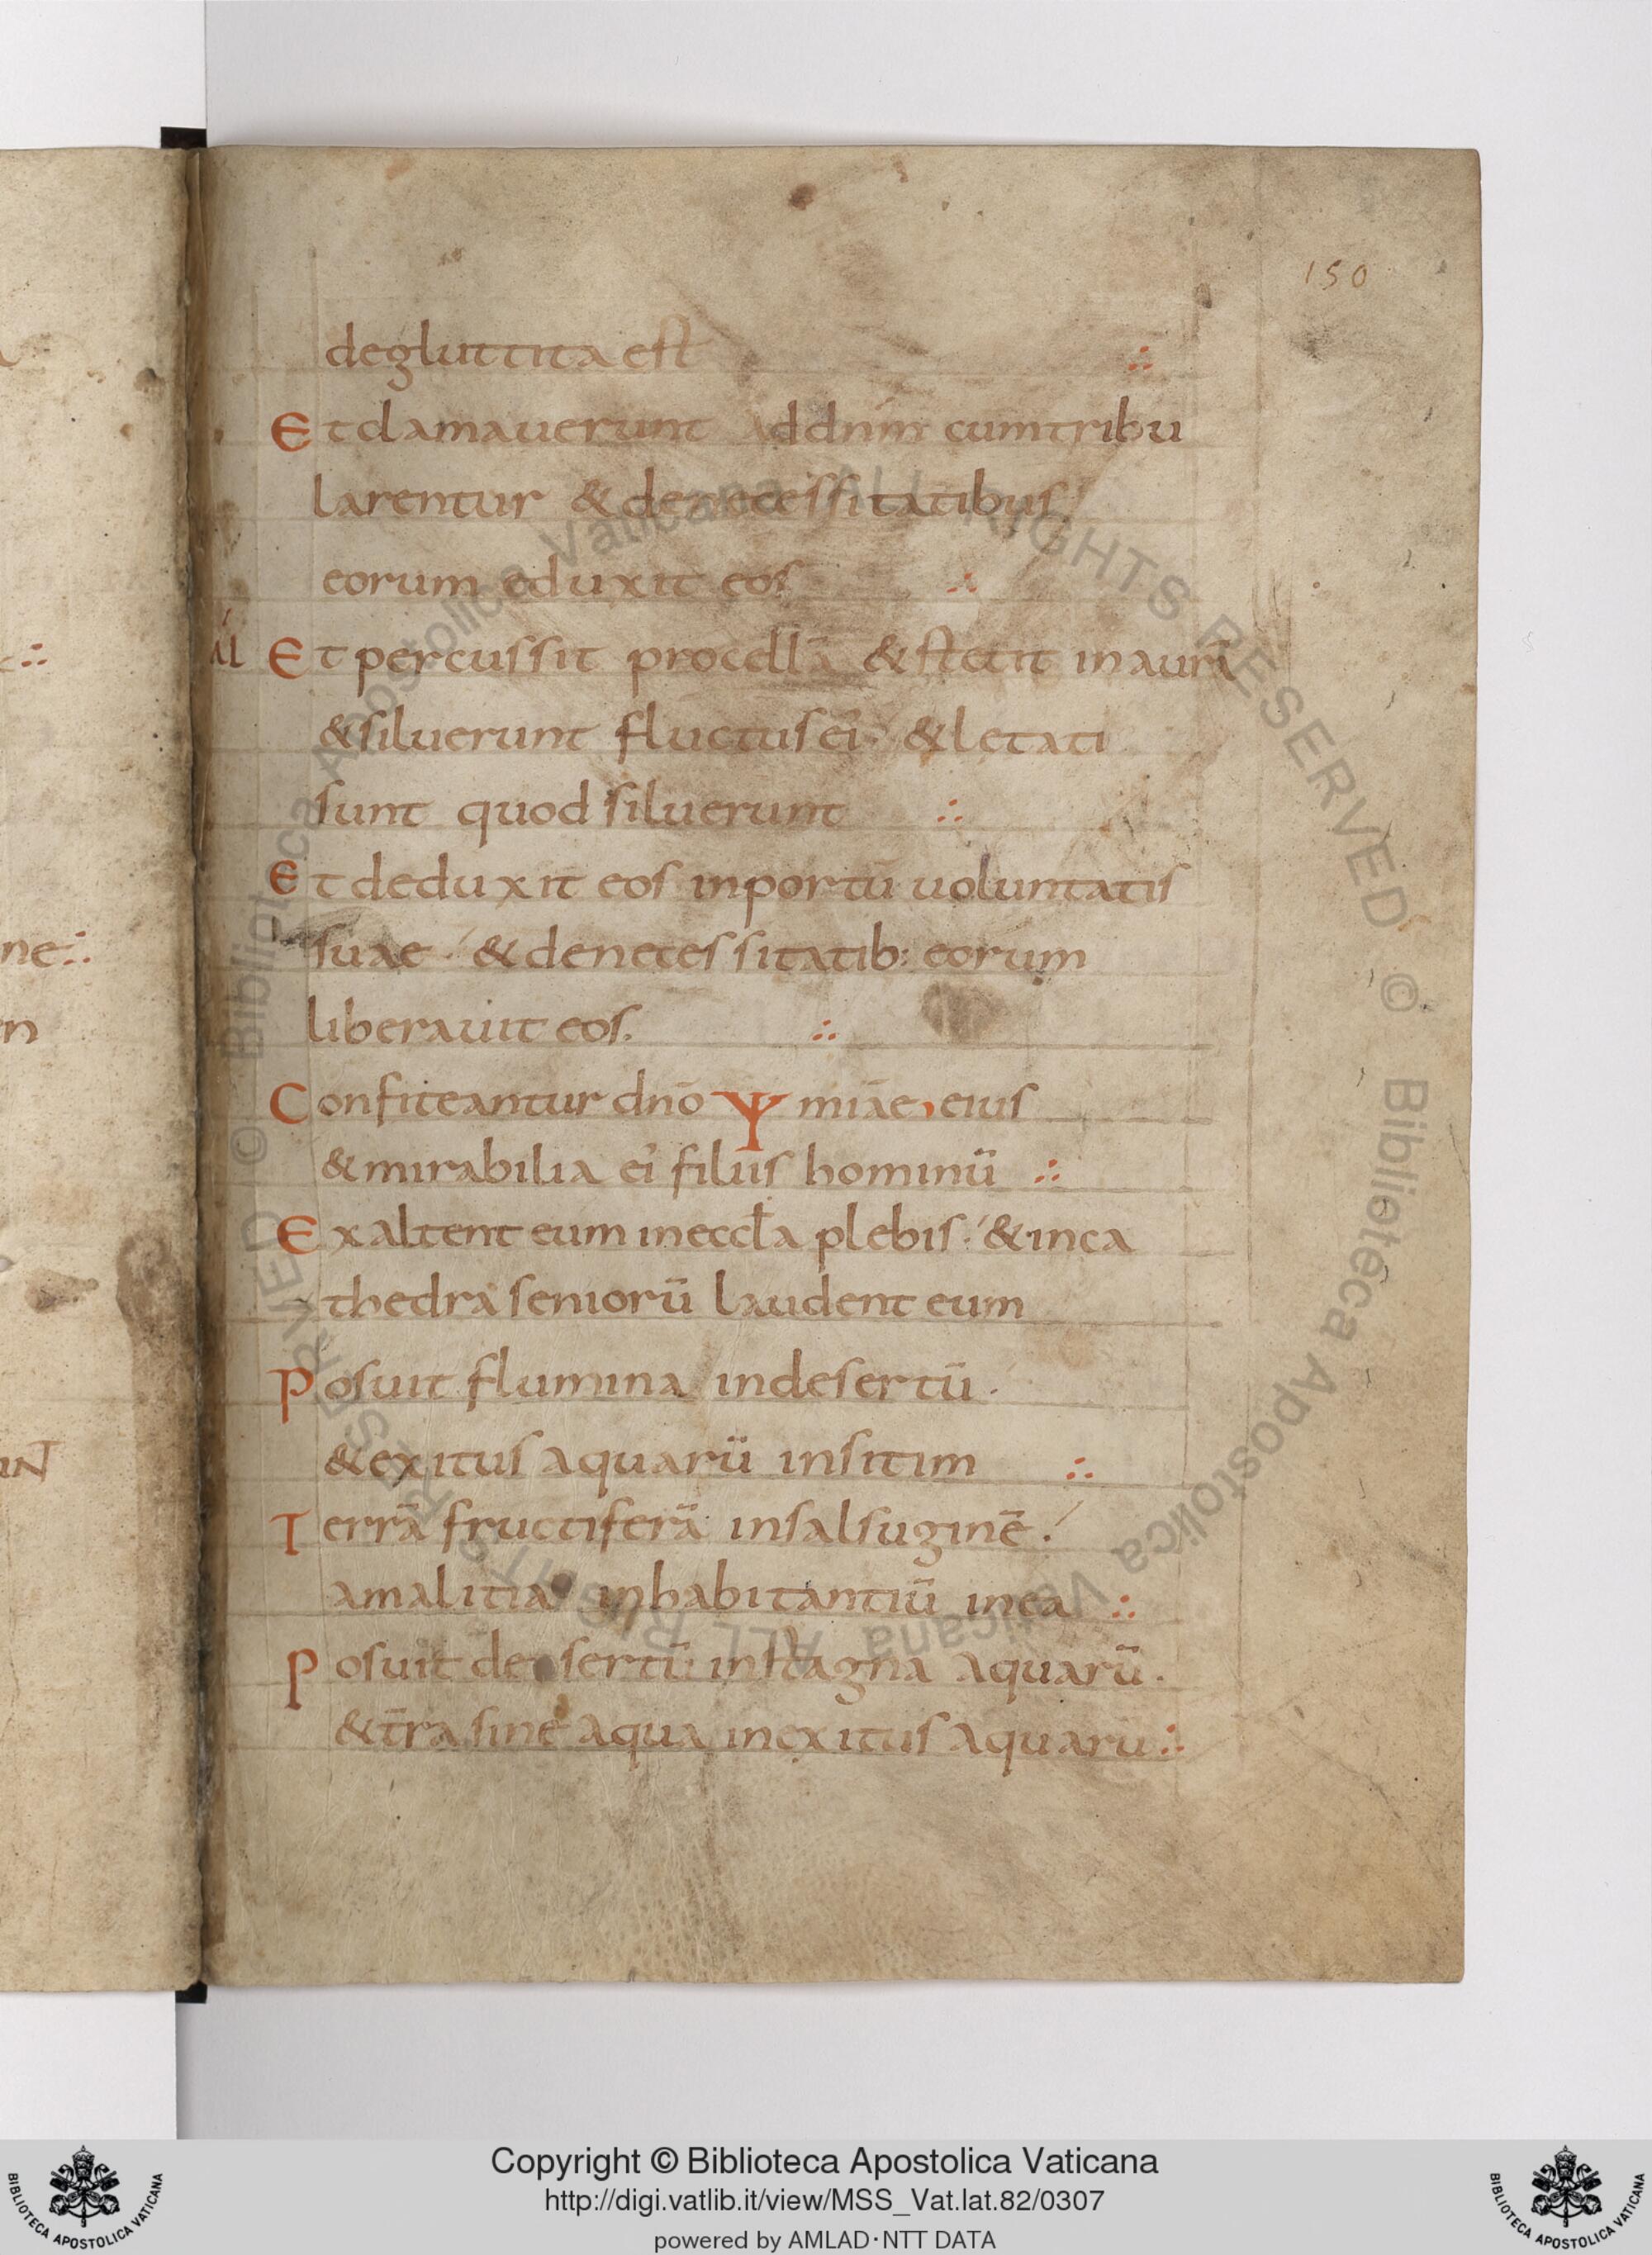 150
degluttita est ∴
Et clamauerunt Ad dn̄m cumtribu
larentur & denecessitatibus
eorum eduxit eos ∴
Et percussit procellā & stetit in aurā
&siluerunt fluctus ei' &letati
sunt quod siluerunt ∴
Et deduxit eos inportū uoluntatis
suae · &denecessitatib: eorum
liberauit eos. ∴
Confiteantur dnō Ψ miāe, eius
&mirabilia ei' filiis hominū ∴
Exaltent eum ineccl̄a plebis: &inca
thedra seniorū laudent eum
Posuit flumina indesertū.
&exitus aquarū insitim ∴
Terrā fructiferā insalsuginē.
amalitia inhabitantiū inea ∴
Posuit de sertū instagna aquarū.
&t̄ra sine aqua inexitus aquarū ∴
ne ∴
n
Copyright © Biblioteca Apostolica Vaticana
http://digi.vatlib.it/view/MSS_Vat.lat.82/0307
powered by AMLAD·NTT DATA
BIBLIOTECA APOSTOLICA VATICANA
BIBLIOTECA APOSTOLICA VATICANA
© Biblioteca Apostolica Vaticana ALL RIGHTS RESERVED
© Biblioteca Apostolica Vaticana ALL RIGHTS RESERVED